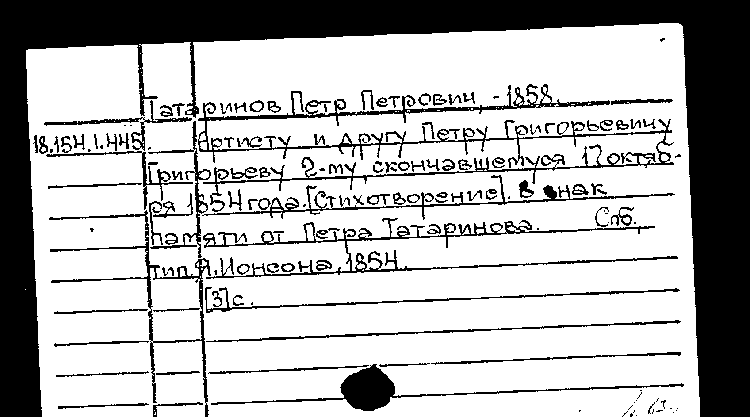 Татаринов Петр Петрович, -1858.
18.154.1.445. Артисту и другу Петру Григорьевичу
Григорьеву 2-му, скончавшемуся 17 октяб-
ря 1854 года. [Стихотворение]. В знак
памяти от Петра Татаринова. Спб.,
тип. Я. Ионсона, 1854.
[3] с.